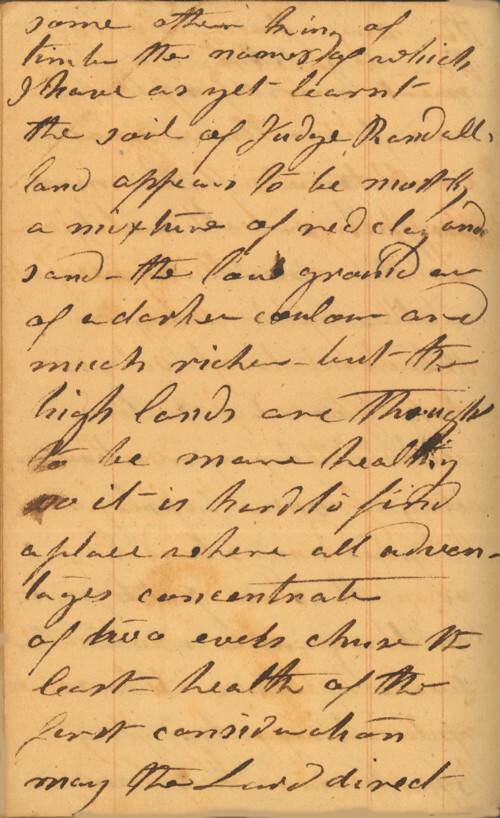 some other king of
timber the names of which
I have as yet learnt
the soil of Judge Randalls
land appears to be mostly
a mixture of red clay and
sand - the low ground are
of a darker coulour and
much richer - but the
high lands are Though
to be more healthy
so it is hard to find
a place where all advan-
tages concentrate
of two evels chuse the
least - health of the
first consideration
may the Lord direct